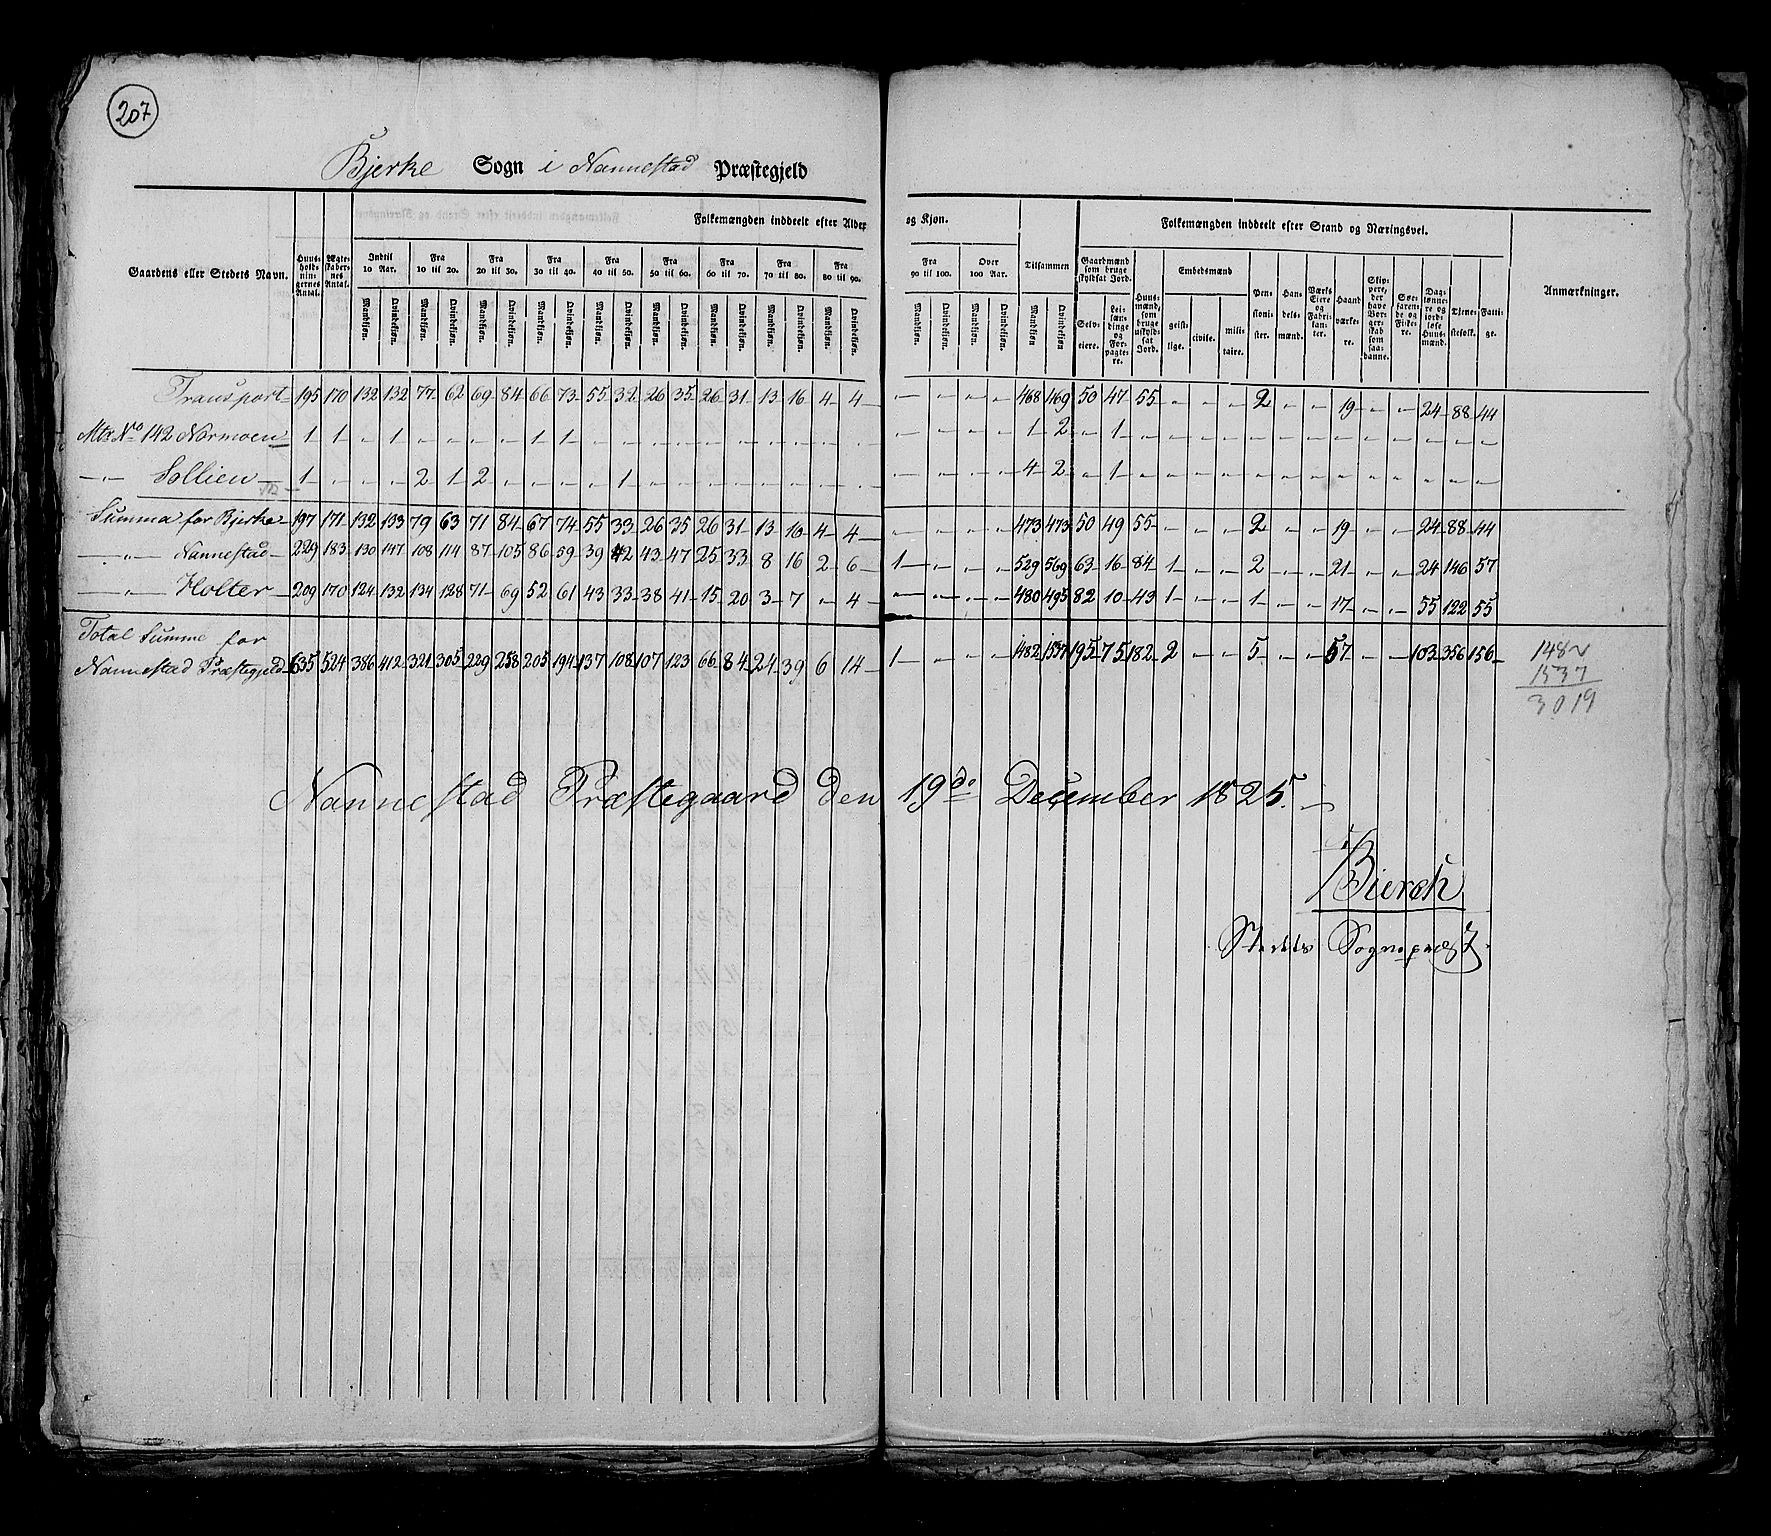 207
Bjerke Sogn i Nannestad Præstegjeld
Folkemængden inddeelt efter Alder og Kjøn. Folkemængden inddeelt efter Stand og Næringsvei.
Gaardens eller Stedets Navn. Huus-holdningernes Antal. Ægteskabernes Antal. Indtil 10 Aar. Fra 10 til 20. Fra 20 til 30. Fra 30 til 40. Fra 40 til 50. Fra 50 til 60. Fra 60 til 70. Fra 70 til 80. Fra 80 til 90. Fra 90 til 100. Over 100 Aar. Tilsammen Gaardmænd som bruge skyldsat Jord. Huusmænd, som bruge uskyldsat Jord. Embedsmænd Pensionister. Handelsmænd. Værks Eiere og Fabrikanter. Haandværkere. Skippere, der have Borgerskab som saadanne. Søefarende og Fiskere. Daglønnere og jordløse Huusmænd. Tjenestefolk. Fattige. Anmærkninger.
Mandkjøn. Qvindekjøn. Mandkjøn. Qvindekjøn. Mandkjøn. Qvindekjøn. Mandkjøn. Qvindekjøn. Mandkjøn. Qvindekjøn. Mandkjøn. Qvindekjøn. Mandkjøn. Qvindekjøn. Mandkjøn. Qvindekjøn. Mandkjøn. Qvindekjøn. Mandkjøn. Qvindekjøn. Mandkjøn. Qvindekjøn. Mandkjøn. Qvindekjøn Selveiere. Leilændinge og Forpagtere. geistlige. civile. militaire.
Transport 195 170 132 132 77 62 69 84 66 73 55 32 26 35 26 31 13 16 4 4 — — — — 468 469 50 47 55 — — — 2 — — 19 — — 24 88 44
Mtr No 142 Normoen 1 1 — 1 — — — — 1 1 — — — — — — — — — — — — — — 1 2 — 1 — — — — — — — — — — — — —
— " — Sollien 1 — — — 2 1 2 — — — — 1 — — — — — — — — — — — — 4 2 — 1 — — — — — — — — — — — — —
Summa for Bjerke 197 171 132 133 79 63 71 84 67 74 55 33 26 35 26 31 13 16 4 4 — — — — 473 473 50 49 55 — — — 2 — — 19 — — 24 88 44
— " — Nannestad 229 183 130 147 108 114 87 105 86 59 39 42 43 47 25 33 8 16 2 6 1 — — — 529 569 63 16 84 1 — — 2 — — 21 — — 24 146 57
— " — Holter 209 170 124 132 134 128 71 69 52 61 43 33 38 41 15 20 3 7 — 4 — — — — 480 495 82 10 43 1 — — 1 — — 17 — — 55 122 55
Total Summe for
Nannestad Præstegjeld 635 524 386 412 321 305 229 258 205 194 137 108 107 123 66 84 24 39 6 14 1 — — — 1482 1537 195 75 182 2 — — 5 — — 57 — — 103 356 156
1482
1537
3019
Nannestad Præstegaard den 19de December 1825.
Bierch
Stedets Sognepræst.